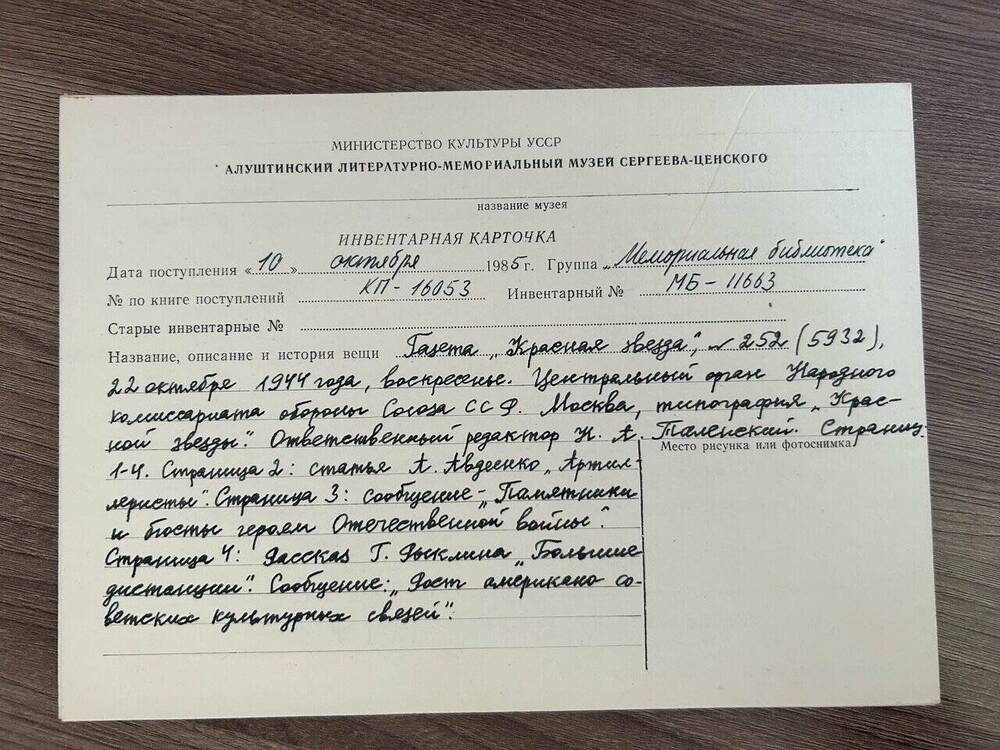 МИНИСТЕРСТВО КУЛЬТУРЫ УССР
АЛУШТИНСКИЙ ЛИТЕРАТУРНО-МЕМОРИАЛЬНЫЙ МУЗЕЙ СЕРГЕЕВА-ЦЕНСКОГО
название музея
ИНВЕНТАРНАЯ КАРТОЧКА
Дата поступления «10» октября 1985 г. Группа „Мемориальная библиотека"
№ по книге поступлений КП-16053 Инвентарный № МБ-11663
Старые инвентарные №
Название, описание и история вещи Газета „Красная звезда", № 252 (5932),
22 октября 1944 года, воскресенье. Центральный орган Народного
комиссариата обороны Союза ССР. Москва, типография „Крас-
ной звезды". Ответственный редактор Н. А. Таленский. Страниц
Место рисунка или фотоснимка
1-4. Страница 2: статья А. Авдеенко „Артил-
леристы". Страница 3: сообщение - „Памятники
и бюсты героям Отечественной войны".
Страница 4: рассказ Г. Рыклина „Большие
дистанции". Сообщение: „Рост американо со-
ветских культурных связей".